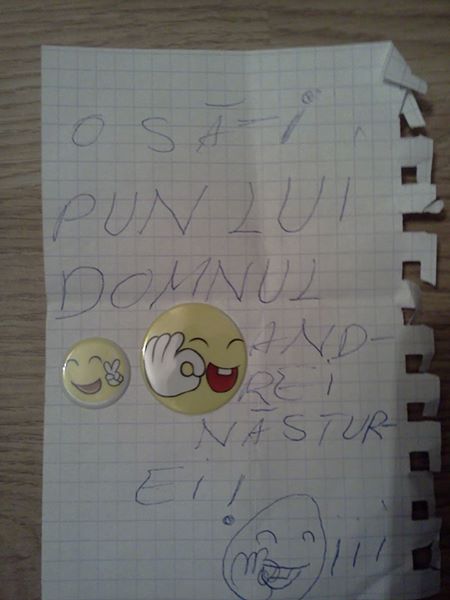 O SĂ-I
PUN LUI
DOMNUL
AND-
REI
NĂSTUR-
EI!